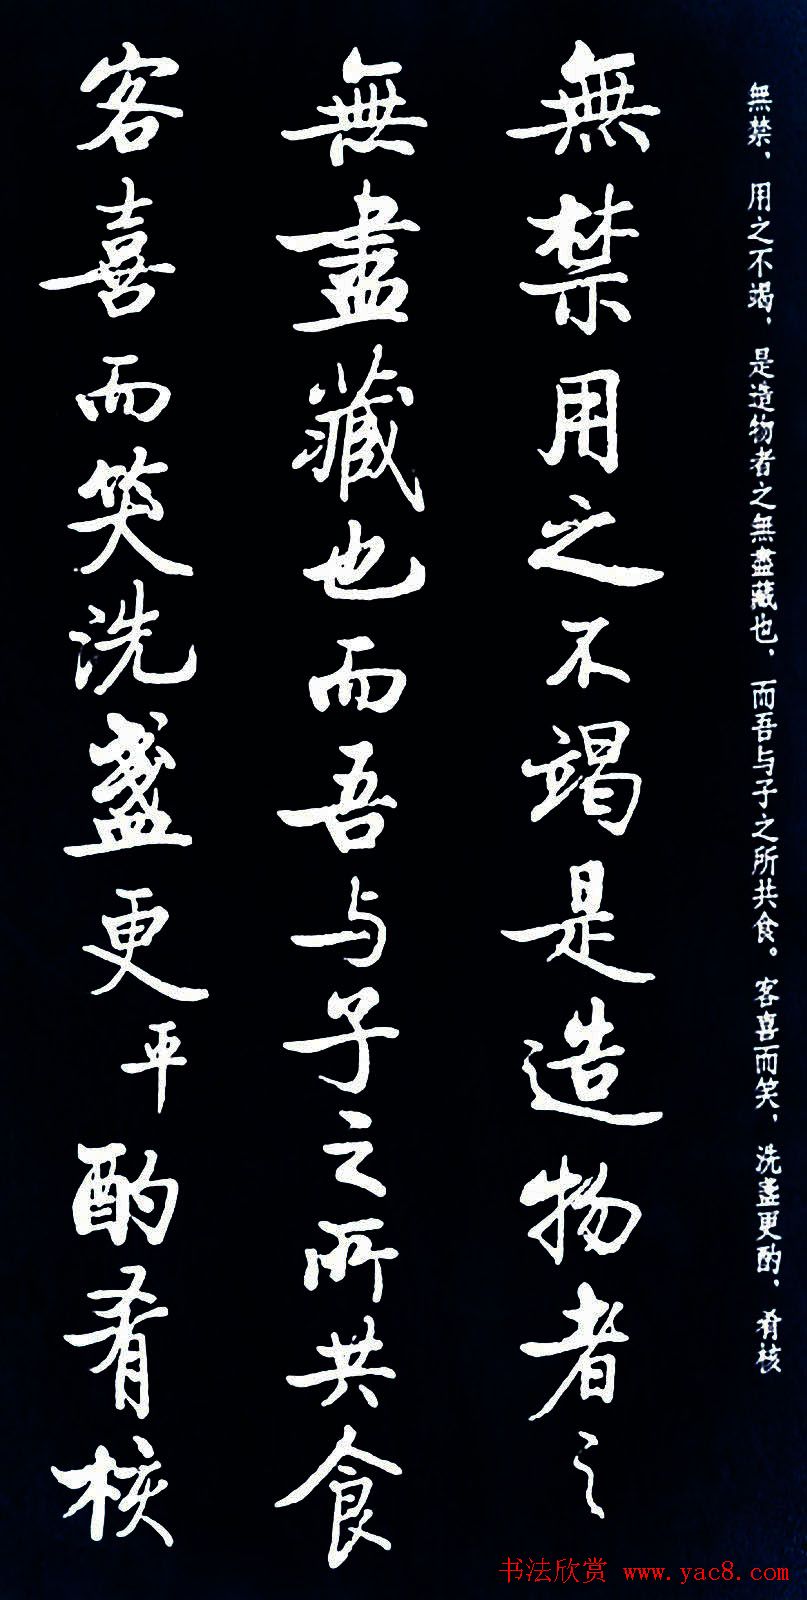 無禁，用之不竭，是造物者之無盡藏也，而吾与子之所共食。客喜而笑，洗盞更酌，肴核
無禁用之不竭是造物者之
無盡藏也而吾与子之所共食
客喜而笑洗盞更平酌肴核
书法欣赏 www.yac8.com